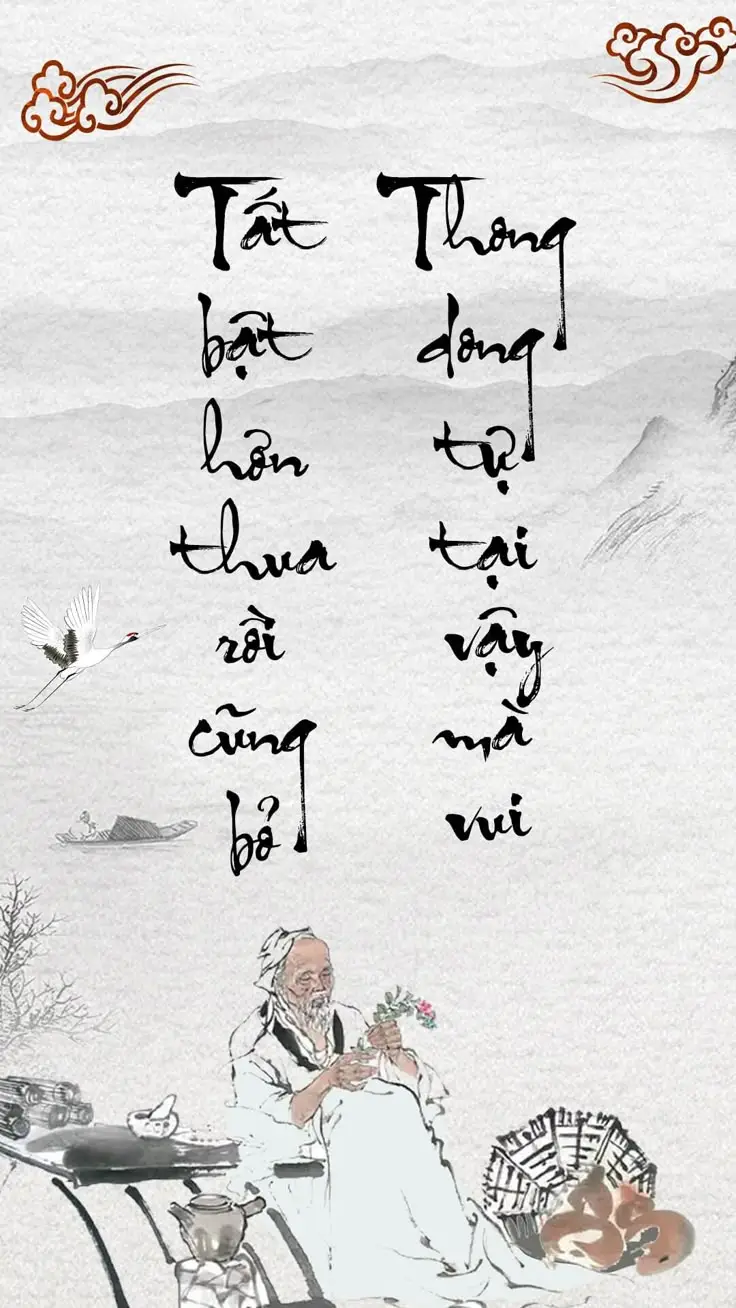 Tất bật hơn thua rồi cũng bỏ
Thong dong tự tại vậy mà vui